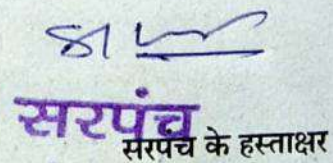 सरपंच
सरपंच के हस्ताक्षर